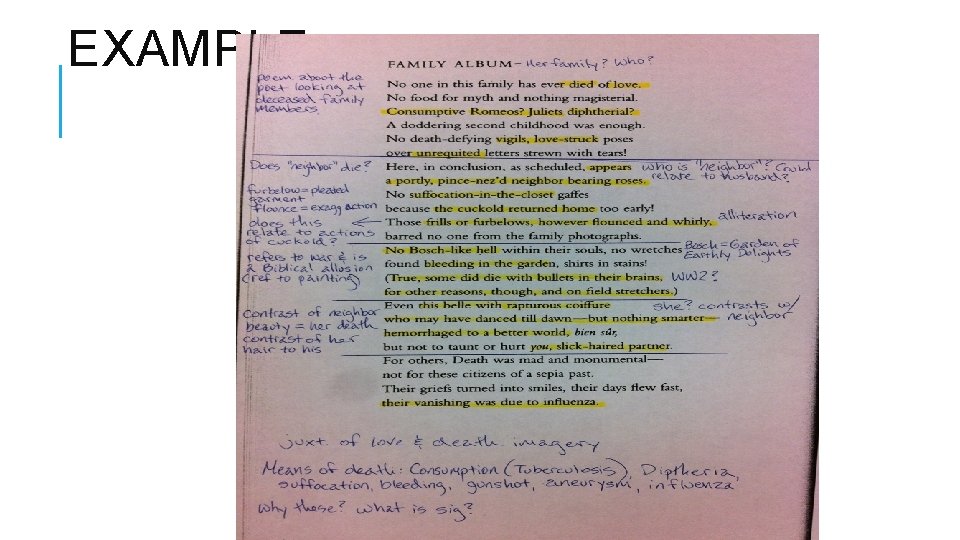 EXAMPLE
FAMILY ALBUM - Her family? Who?
poem about the
poet looking at
deceased family
members.
No one in this family has ever died of love.
No food for myth and nothing magisterial.
Consumptive Romeos? Juliets diphtherial?
A doddering second childhood was enough.
No death-defying vigils, love-struck poses
over unrequited letters strewn with tears!
Does "neighbor" die?
Here, in conclusion, as scheduled, appears
who is "neighbor"? Could
relate to husband?
a portly, pince-nez'd neighbor bearing roses.
furbelow = pleated
garment
flounce = exagg action
does this
relate to actions
of cuckold?
No suffocation-in-the-closet gaffes
because the cuckold returned home too early!
Those frills or furbelows, however flounced and whirly,
alliteration
barred no one from the family photographs.
No Bosch-like hell within their souls, no wretches
Bosch = Garden of
Earthly Delights
refers to war & is
a Biblical allusion
(ref to painting)
found bleeding in the garden, shirts in stains!
(True, some did die with bullets in their brains, WW2?
for other reasons, though, and on field stretchers.)
Even this belle with rapturous coiffure
she? contrasts w/
neighbor
Contrast of neighbor
beauty = her death
contrast of her
hair to his
who may have danced till dawn—but nothing smarter—
hemorrhaged to a better world, bien sûr,
but not to taunt or hurt you, slick-haired partner.
For others, Death was mad and monumental—
not for these citizens of a sepia past.
Their griefs turned into smiles, their days flew fast,
their vanishing was due to influenza.
juxt. of love & death imagery
Means of death: Consumption (Tuberculosis), Diptheria,
suffocation, bleeding, gunshot, aneurysm, influenza
Why these? What is sig?